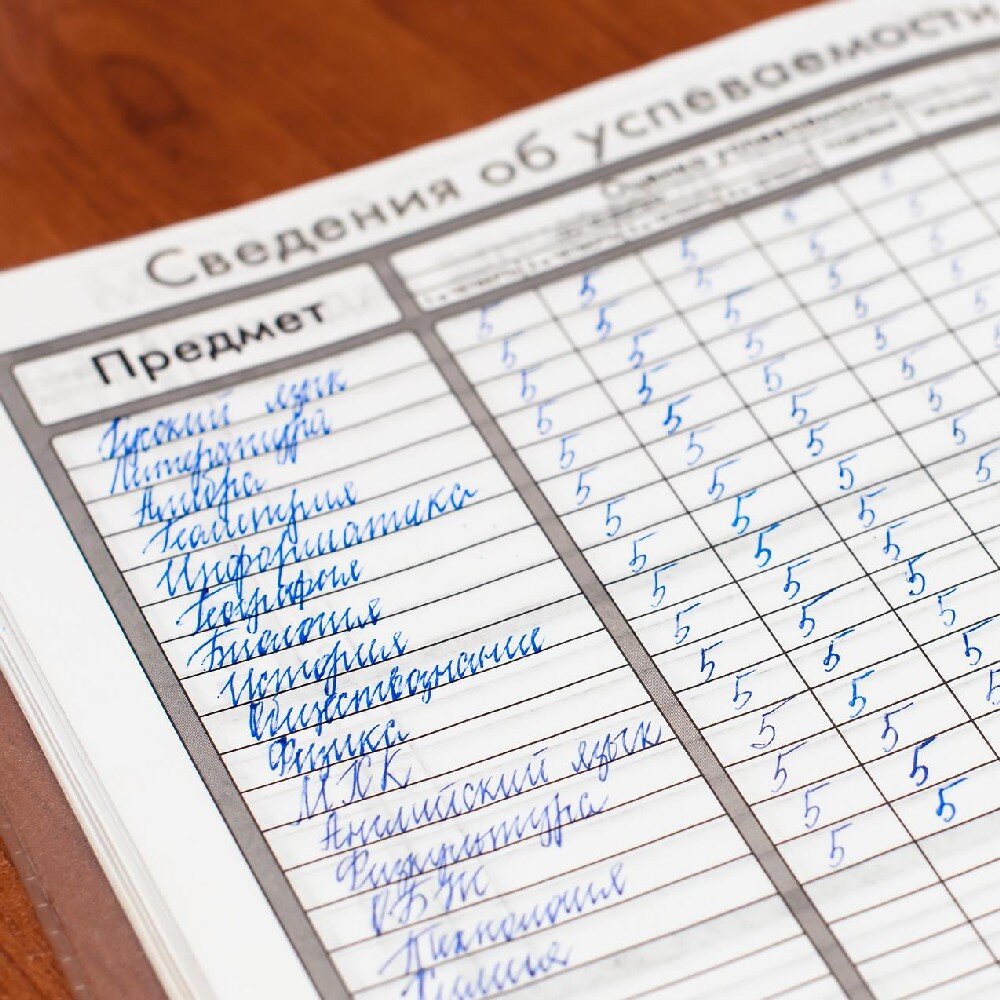 Сведения об успеваемости
Предмет
Оценка успеваемости
Русский язык 5 5 5 5 5
Литература 5 5 5 5 5
Алгебра 5 5 5 5 5
Геометрия 5 5 5 5 5
Информатика 5 5 5 5 5
География 5 5 5 5 5
Биология 5 5 5 5
История 5 5 5 5
Обществознание 5 5 5 5
Физика 5 5 5
МХК 5 5 5
Английский язык 5 5 5
Физкультура 5 5 5
ОБЖ 5 5
Технология 5 5
Химия 5 5